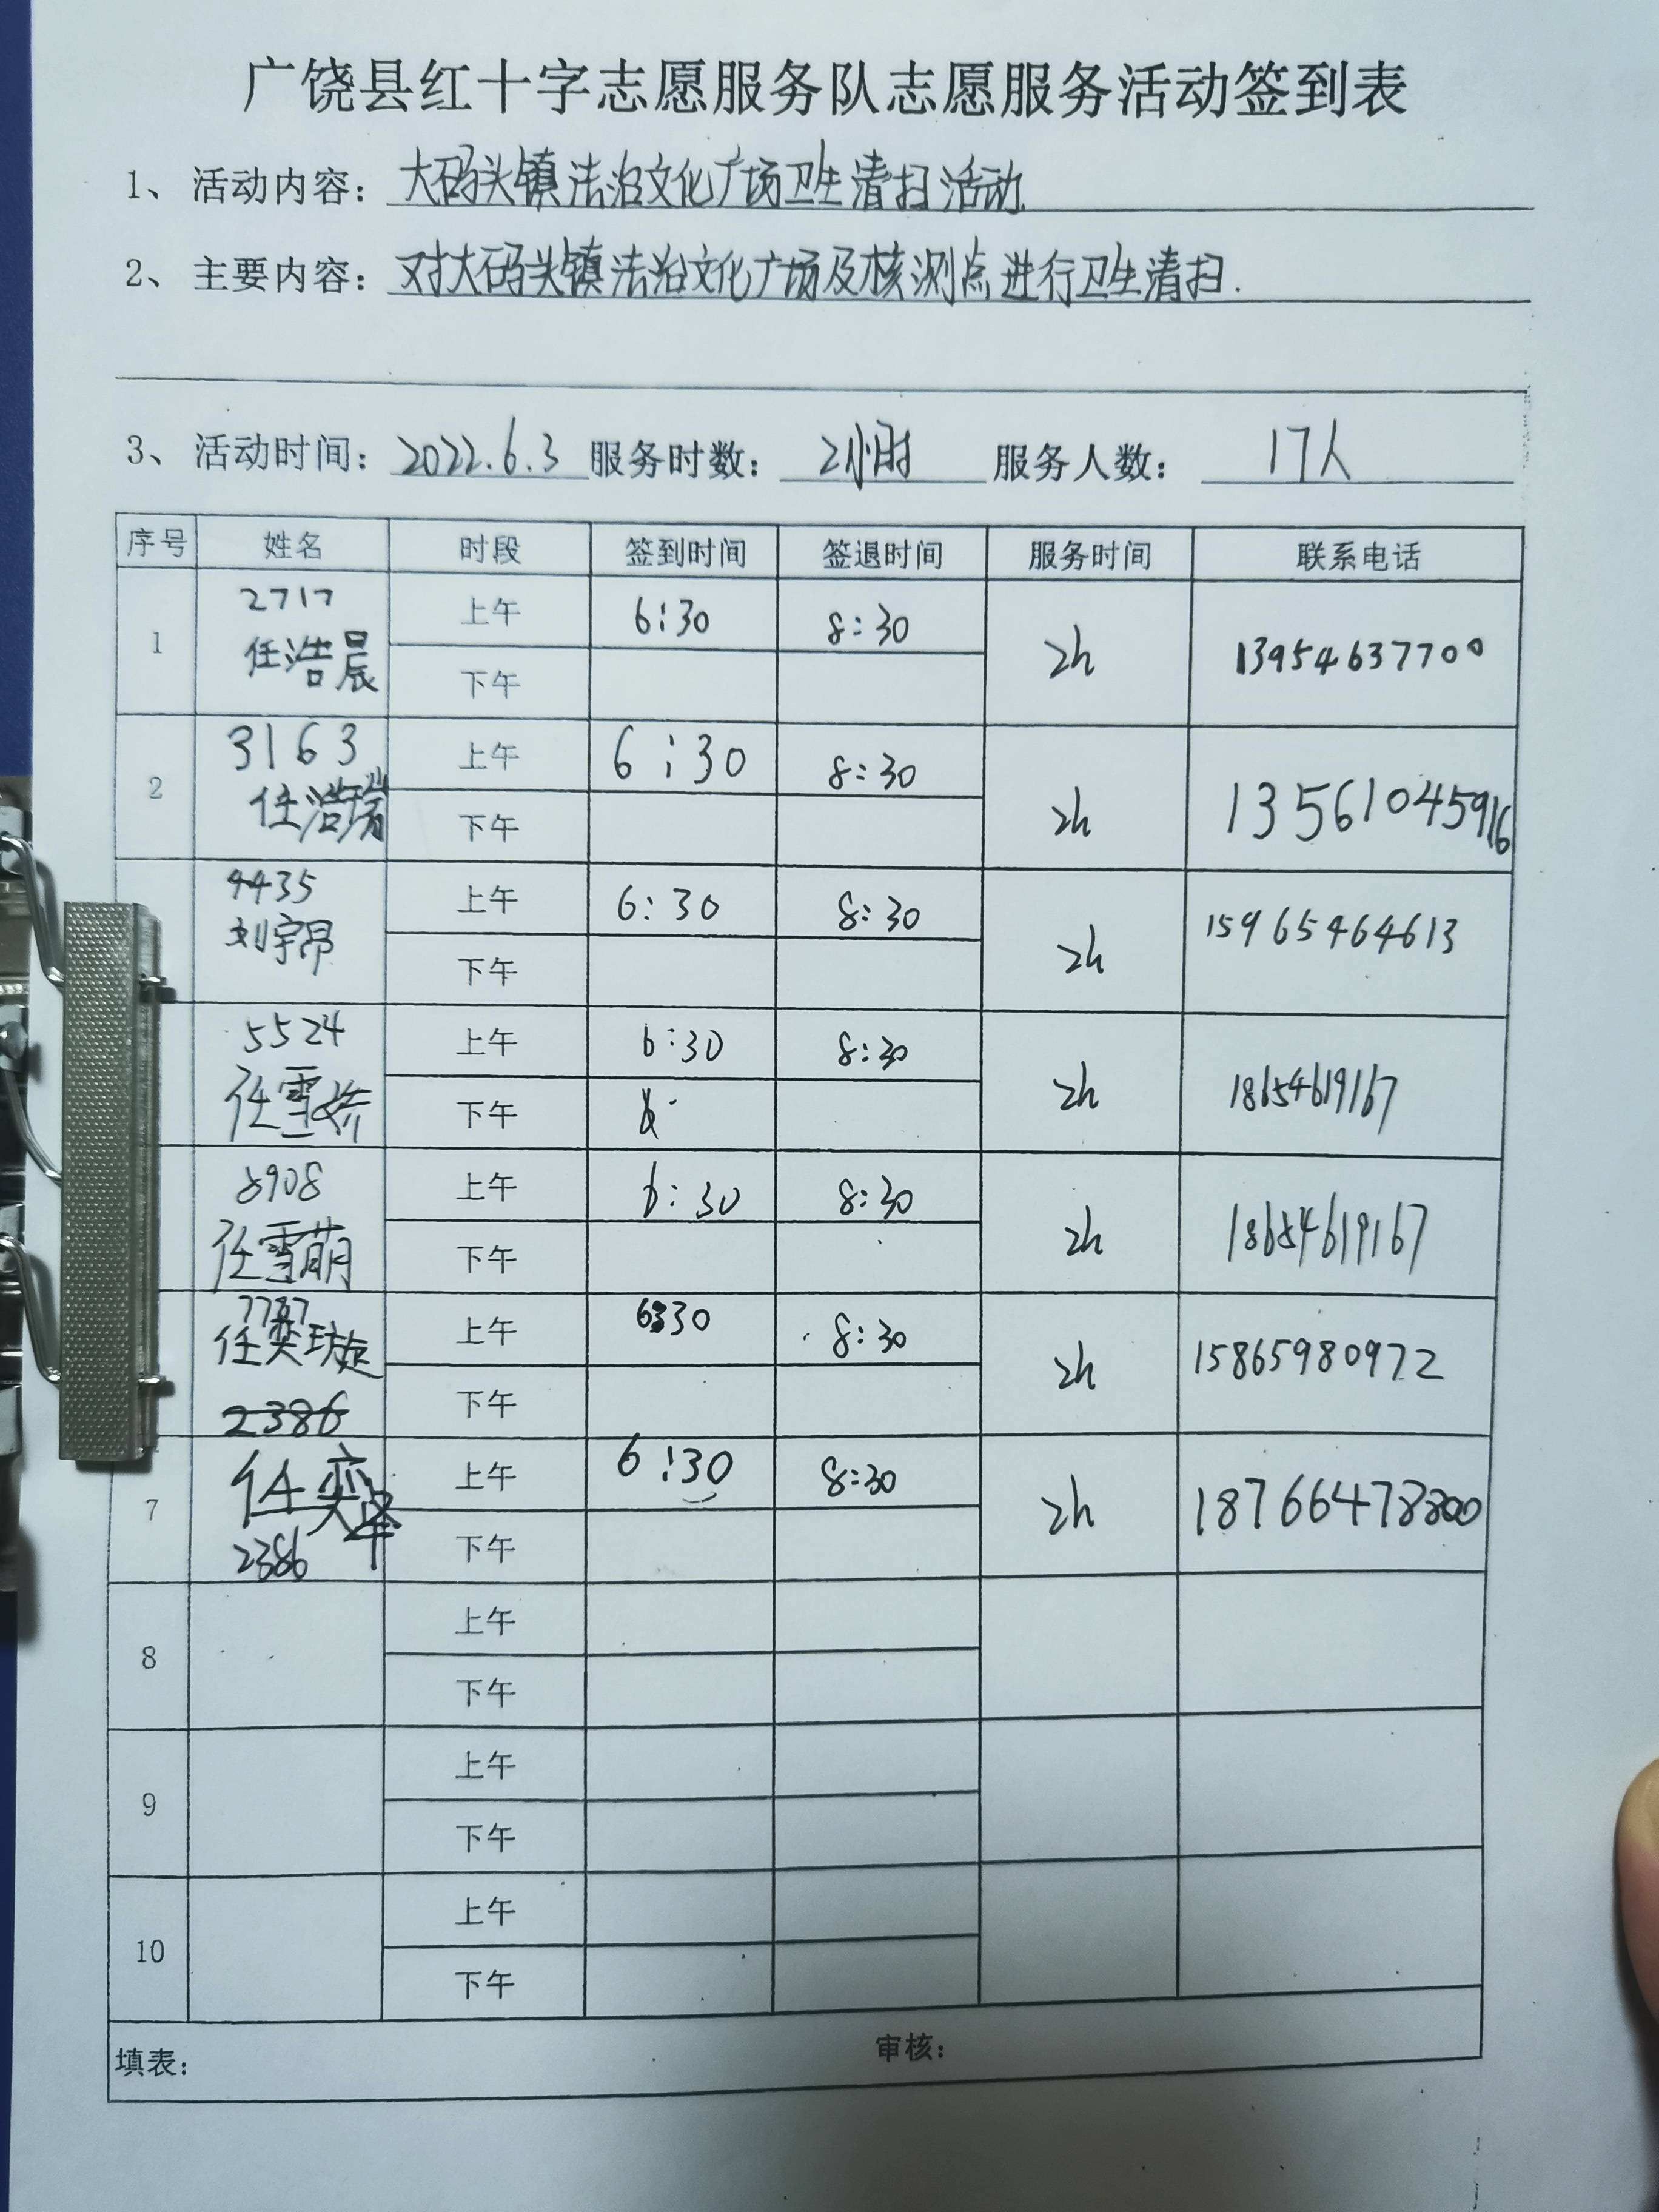 广饶县红十字志愿服务队志愿服务活动签到表
1、活动内容：大码头镇法治文化广场卫生清扫活动
2、主要内容：对大码头镇法治文化广场及核测点进行卫生清扫.
3、活动时间：2022.6.3 服务时数：2小时 服务人数：17人
序号 姓名 时段 签到时间 签退时间 服务时间 联系电话
1 2717 任浩晨 上午 6:30 8:30 2h 13954637700
下午
2 3163 任浩瑞 上午 6:30 8:30 2h 13561045916
下午
4435 刘宇昂 上午 6:30 8:30 2h 15965464613
下午
5524 任雪娇 上午 6:30 8:30 2h 18654619167
下午
8908 任雪萌 上午 6:30 8:30 2h 18654619167
下午
7787 任奕璇 上午 6:30 8:30 2h 15865980972
2386 下午
7 任奕泽 2386 上午 6:30 8:30 2h
下午
8 上午
下午
9 上午
下午
10 上午
下午
填表： 审核：